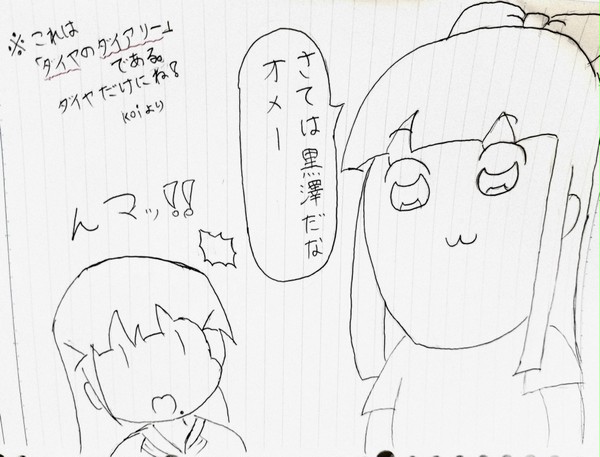 ※これは
「ダイヤのダイアリー」
である。
ダイヤだけにね?
koiより
さては黒澤だな
オメー
んマッ!!